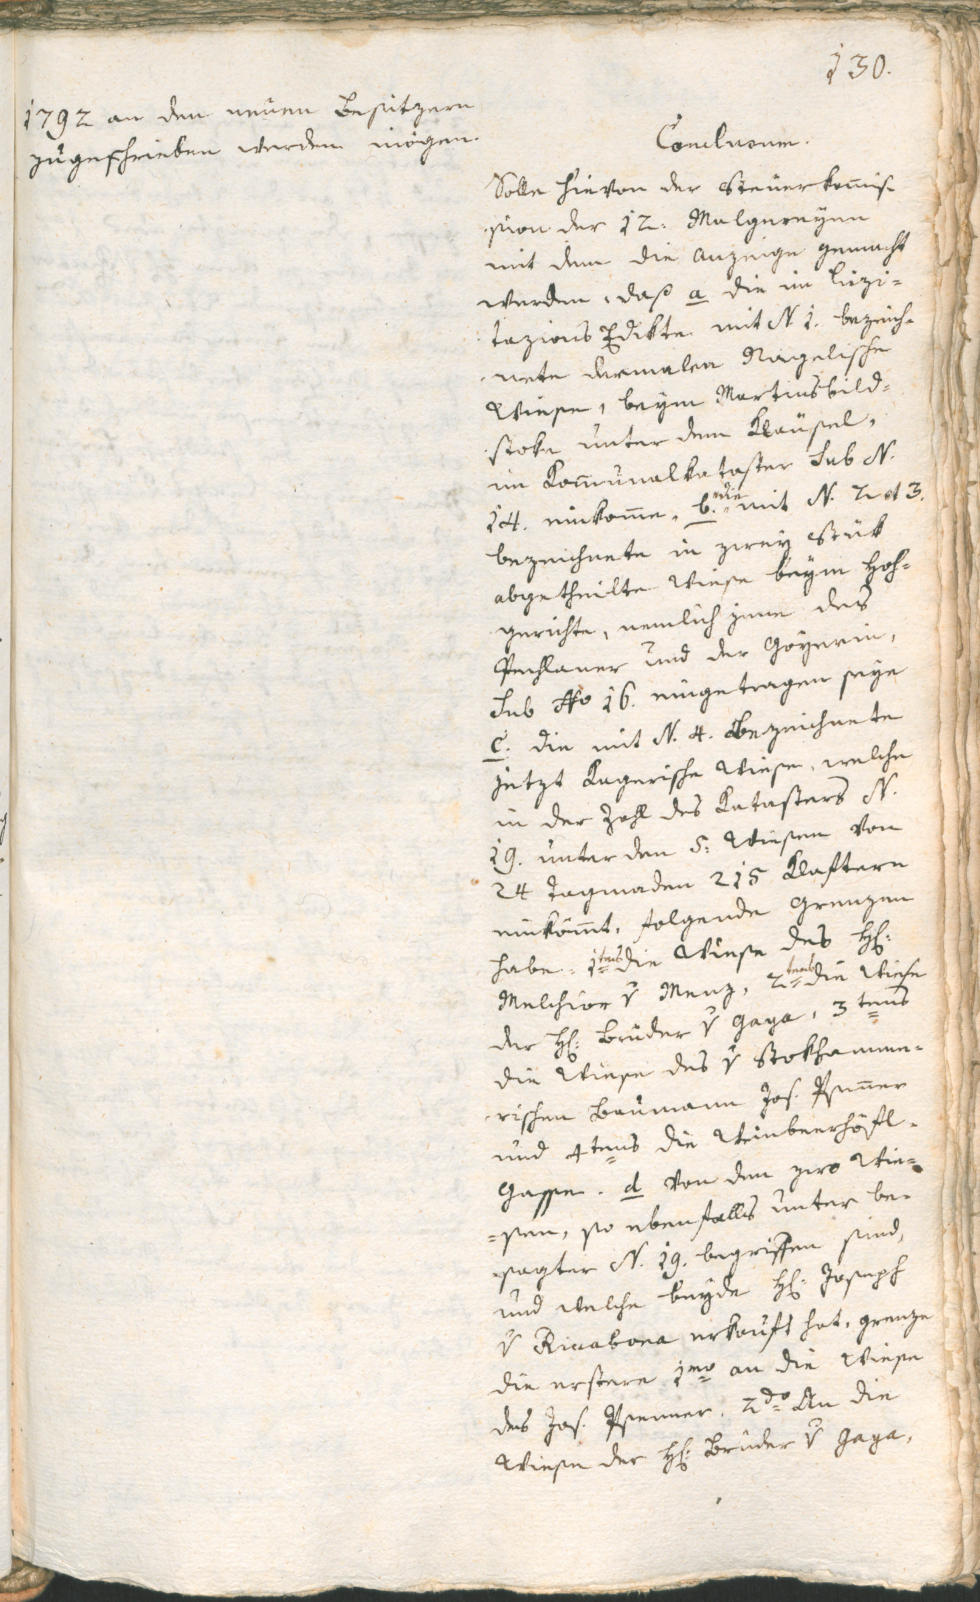 130.
1792 an den neuen Besitzern
zugeschrieben werden mögen.
Conclusum.
Solle hievon der Steuerkom̅is¬
sion der 12. Malgreyen
mit dem die Anzeige gemacht
werden, daß a die im Lizi¬
tazions Edikte mit N 1. bezeich¬
nete dermalen Nagelische
Wiese, beym Martinsbild¬
stoke unter dem Kläusel,
im Kom̅unalkataster Sub N.
14. einkom̅e, b. die mit N. 2 et 3.
bezeichnete in zwey Stük
abgetheilte Wiese beym Hoh¬
gerichte, nemlich jene des
Pechlaner und der Goyerin,
Sub Nro 16. eingetragen seye
c. die mit N. 4. Bezeichnete
jetzt Kagerische Wiese, welche
in der Zahl des Katasters N.
19. unter den 5. Wiesen von
24 Tagmaden 215 Klaftern
einköm̅t, folgende Grenzen
habe. 1tens die Wiese des H:
Melchior v Menz, 2tens die Wiese
der H: Brüder v Gaya, 3tens
die Wiese des v Stokhamme¬
rischen Baumann Jos. Psenner
und 4tens die Weinbeerhöfl-
Gasse. d von den zwo Wie¬
=sen, so ebenfalls unter be¬
sagter N. 19. begriffen sind,
und welche beyde H: Joseph
v Riccabona erkauft hat, grenze
die erstere 1mo an die Wiese
des Jos. Psenner. 2do An die
Wiese der H: Brüder v Gaya,